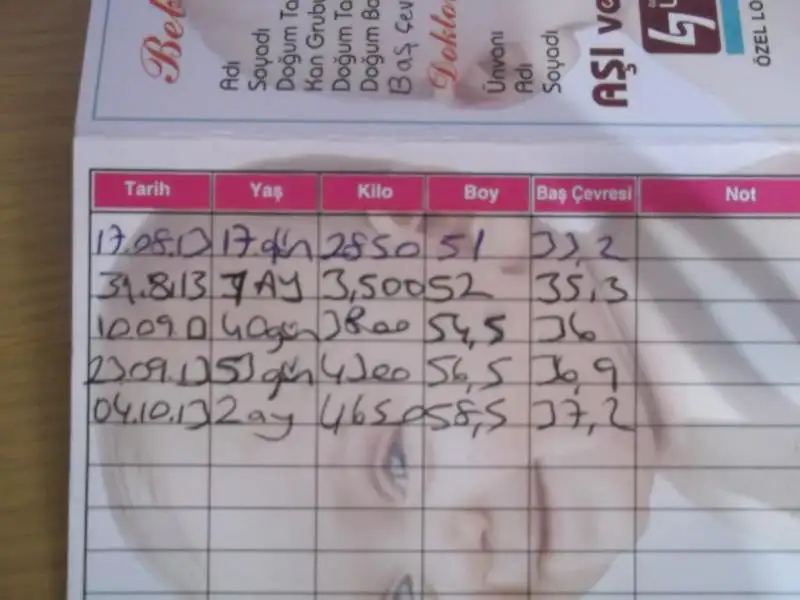 Beb
Adı
Soyadı
Doğum Ta
Kan Grubu
Doğum Ta
Doğum Bo
Baş Çev
Doktor
Ünvanı
Adı
Soyadı
AŞI ve
ÖZEL LO
Tarih Yaş Kilo Boy Baş Çevresi Not
17.08.13 17 gün 2850 51 33,2
31.8.13 1 AY 3,500 52 35,3
10.09.13 40gün 3800 54,5 36
23.09.13 53 gün 4300 56,5 36,9
04.10.13 2 ay 4650 58,5 37,2